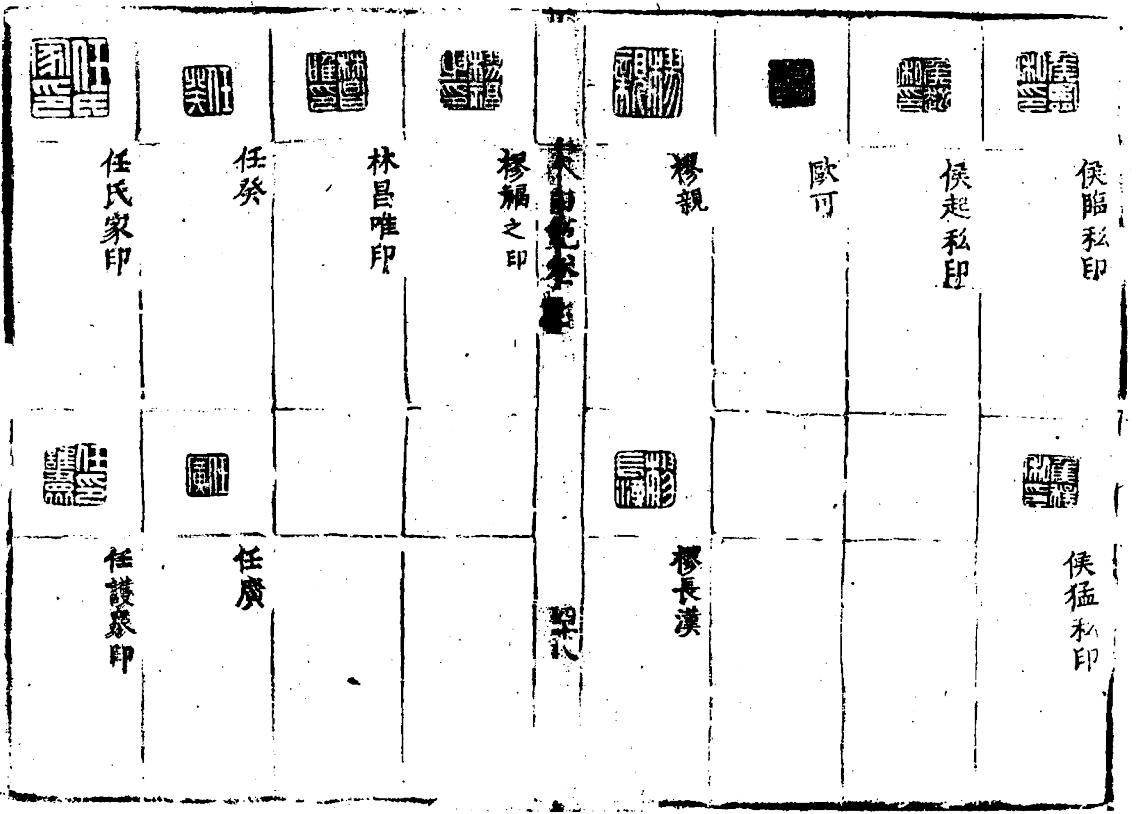 侯臨私印
侯猛私印
侯起私印
歐可
樛親
樛長漢
四十八
樛觿之印
林昌唯印
任癸
任廣
任氏家印
任護眾印